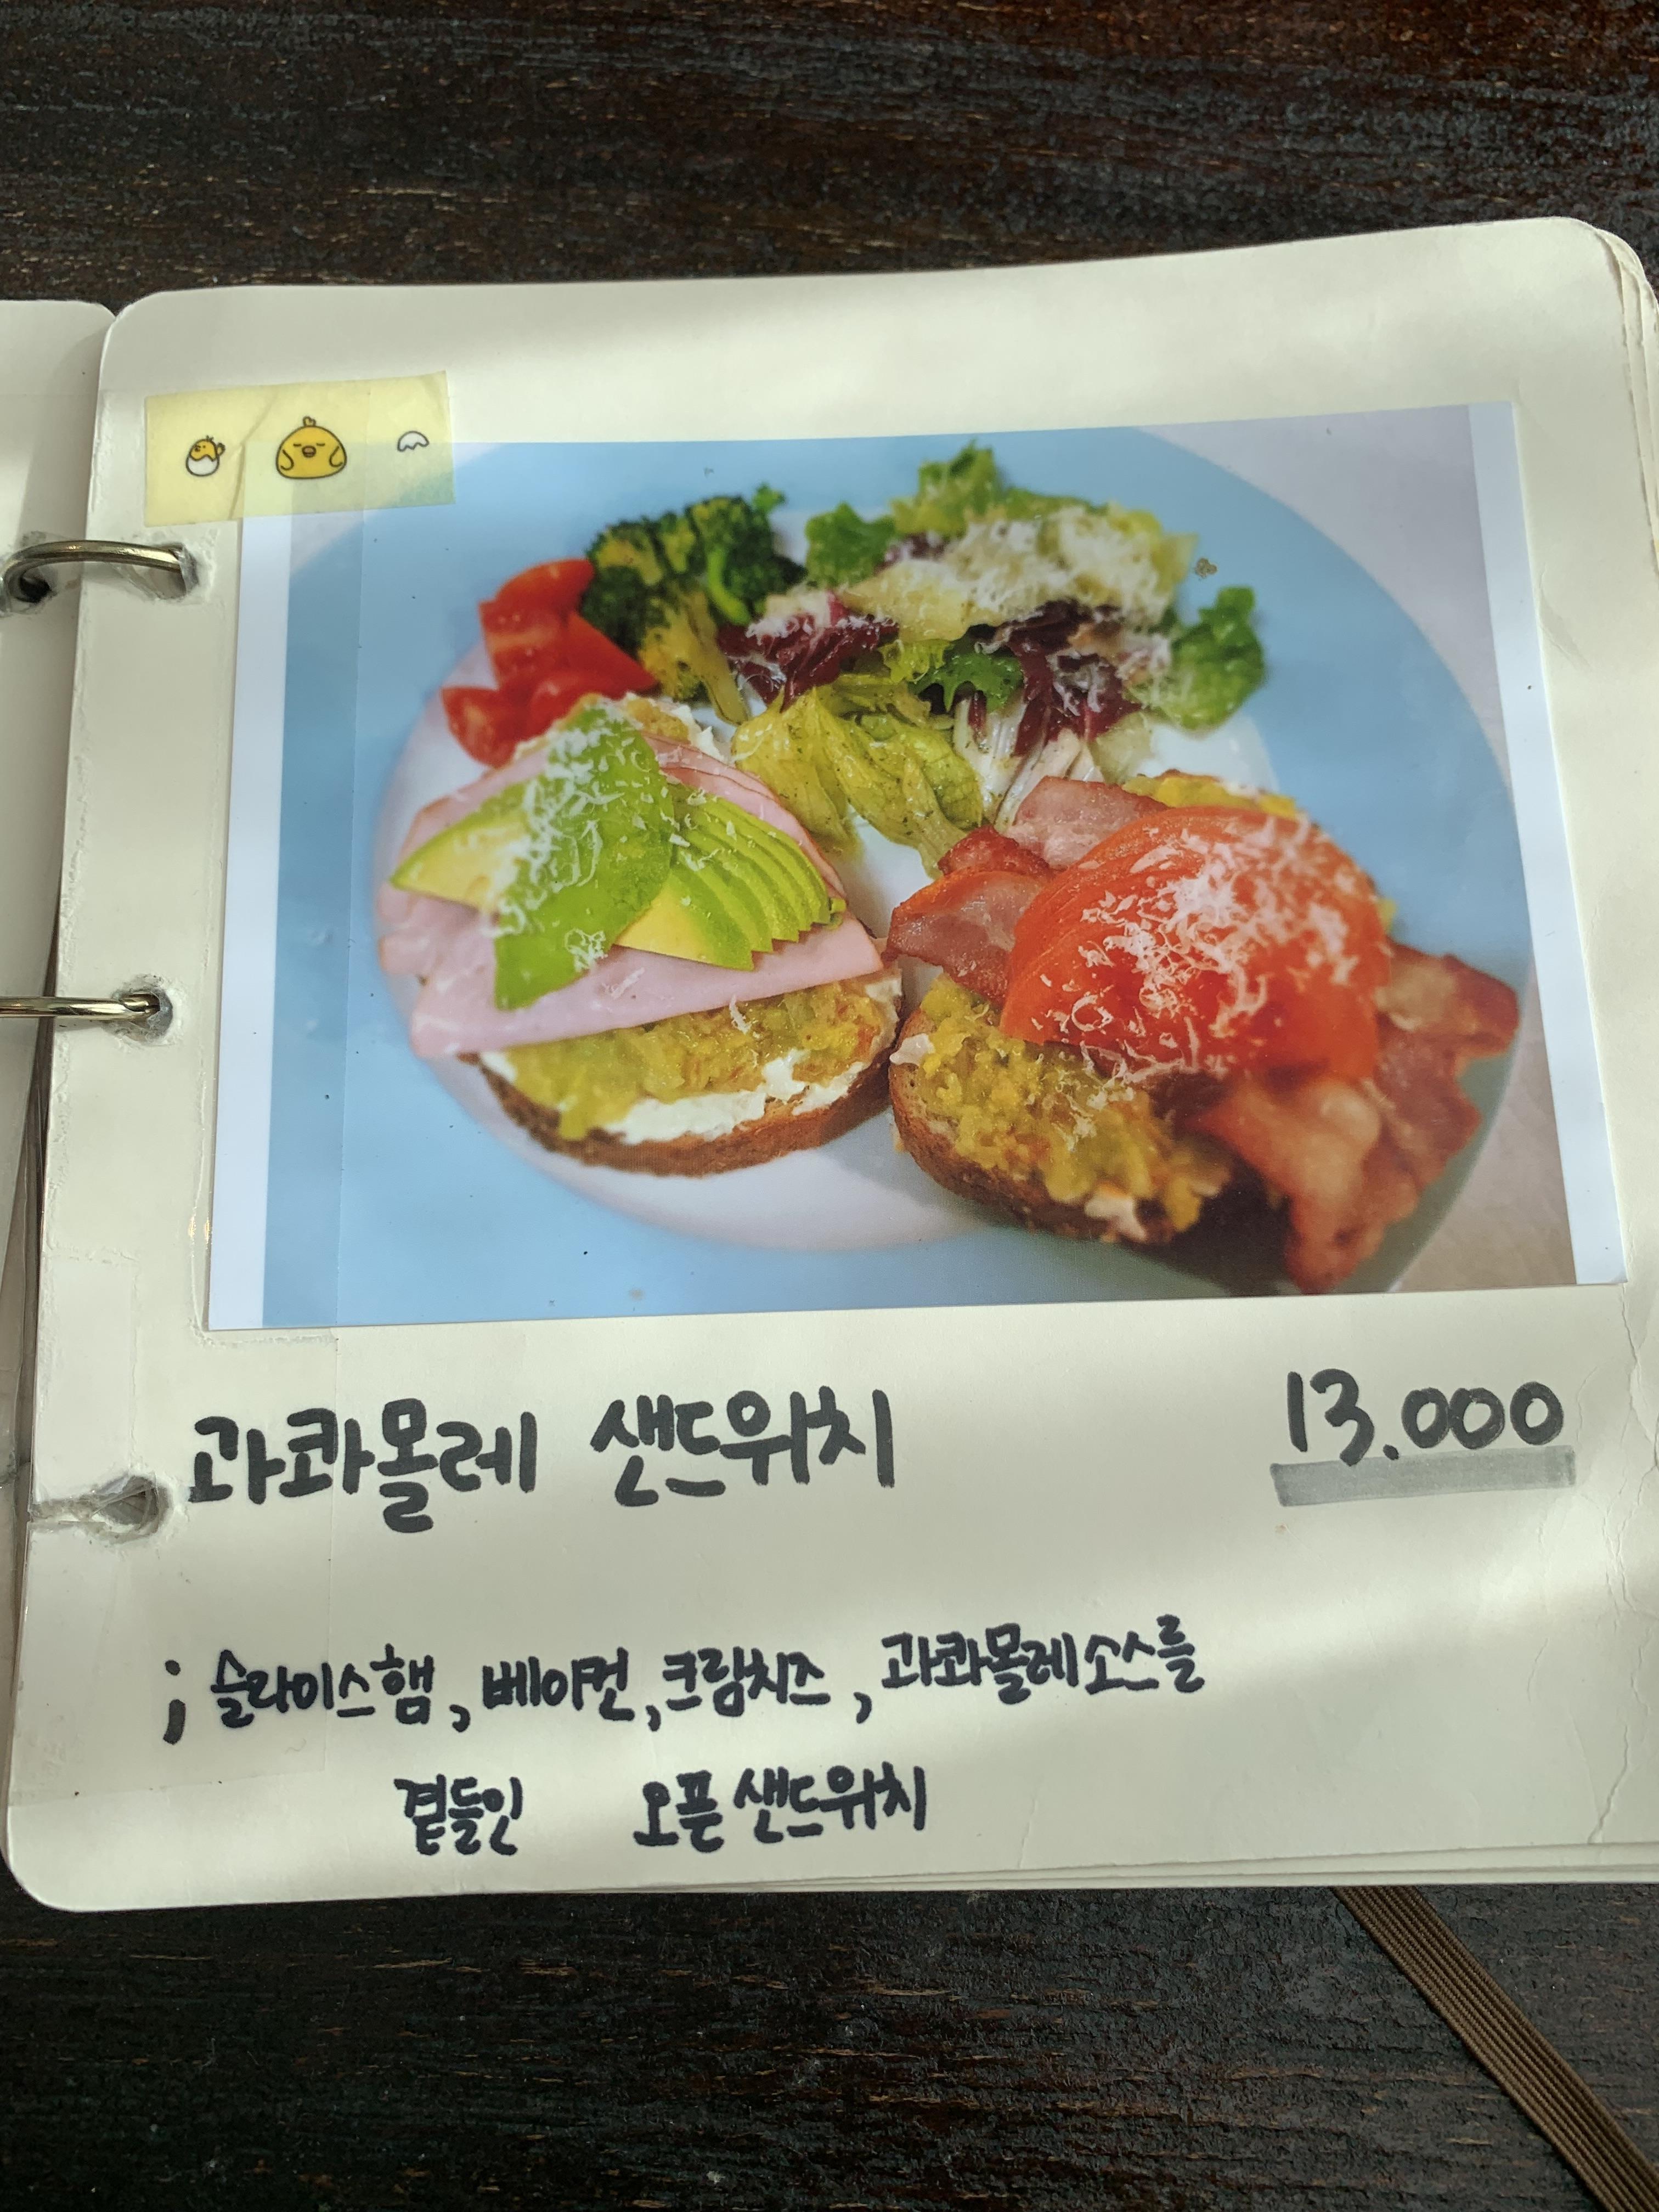 과콰몰레 샌드위치 13.000
; 슬라이스햄, 베이컨, 크림치즈, 과콰몰레소스를
곁들인 오픈샌드위치